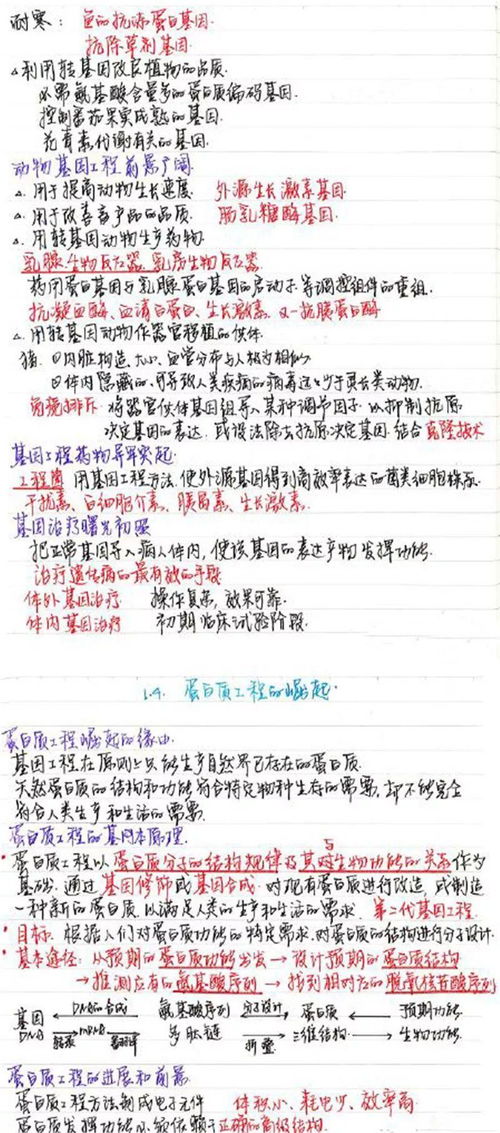 耐寒: 鱼的抗冻蛋白基因.
抗除草剂基因.
△利用转基因改良植物的品质.
必需氨基酸含量多的蛋白质编码基因.
控制番茄果实成熟的基因.
花青素代谢有关的基因.
动物基因工程前景广阔
△. 用于提高动物生长速度. 外源生长激素基因.
△. 用于改善畜产品的品质. 肠乳糖酶基因.
△. 用转基因动物生产药物.
乳腺生物反应器. 乳房生物反应器.
药用蛋白基因与乳腺蛋白基因的启动子等调控组件的重组.
抗凝血酶、血清白蛋白、生长激素、α-抗胰蛋白酶
△. 用转基因动物作器官移植的供体.
猪. ①内脏构造、大小、血管分布与人极为相似.
②体内隐藏的、可导致人类疾病的病毒远少于灵长类动物.
免疫排斥 将器官供体基因组导入某种调节因子. 以抑制抗原
决定基因的表达. 或设法除去抗原决定基因. 结合克隆技术
基因工程药物异军突起.
工程菌 用基因工程方法. 使外源基因得到高效率表达的菌类细胞株系.
干扰素、白细胞介素、胰岛素、生长激素.
基因治疗曙光初照
把正常基因导入病人体内, 使该基因的表达产物发挥功能.
治疗遗传病的最有效的手段
体外基因治疗 操作复杂, 效果可靠.
体内基因治疗 初期临床试验阶段.
1.4. 蛋白质工程的崛起.
蛋白质工程崛起的缘由.
基因工程在原则上只能生产自然界已存在的蛋白质.
天然蛋白质的结构和功能符合特定物种生存的需要, 却不能完全
符合人类生产和生活的需要.
蛋白质工程的基本原理.
• 蛋白质工程以蛋白质分子的结构规律及其与生物功能的关系作为
基础. 通过基因修饰或基因合成. 对现有蛋白质进行改造, 或制造
一种新的蛋白质. 以满足人类的生产和生活的需求. 第二代基因工程.
• 目标. 根据人们对蛋白质功能的特定需求. 对蛋白质的结构进行分子设计.
• 基本途径: 从预期的蛋白质功能出发→设计预期的蛋白质结构
→推测应有的氨基酸序列→找到相对应的脱氧核苷酸序列
基因 DNA合成 氨基酸序列 分子设计 蛋白质 预期功能
DNA 转录 mRNA 翻译 多肽链 折叠 三维结构 生物功能.
蛋白质工程的进展和前景.
蛋白质工程方法制成电子元件 体积小、耗电少、效率高
蛋白质发挥功能必须依赖于正确的高级结构.